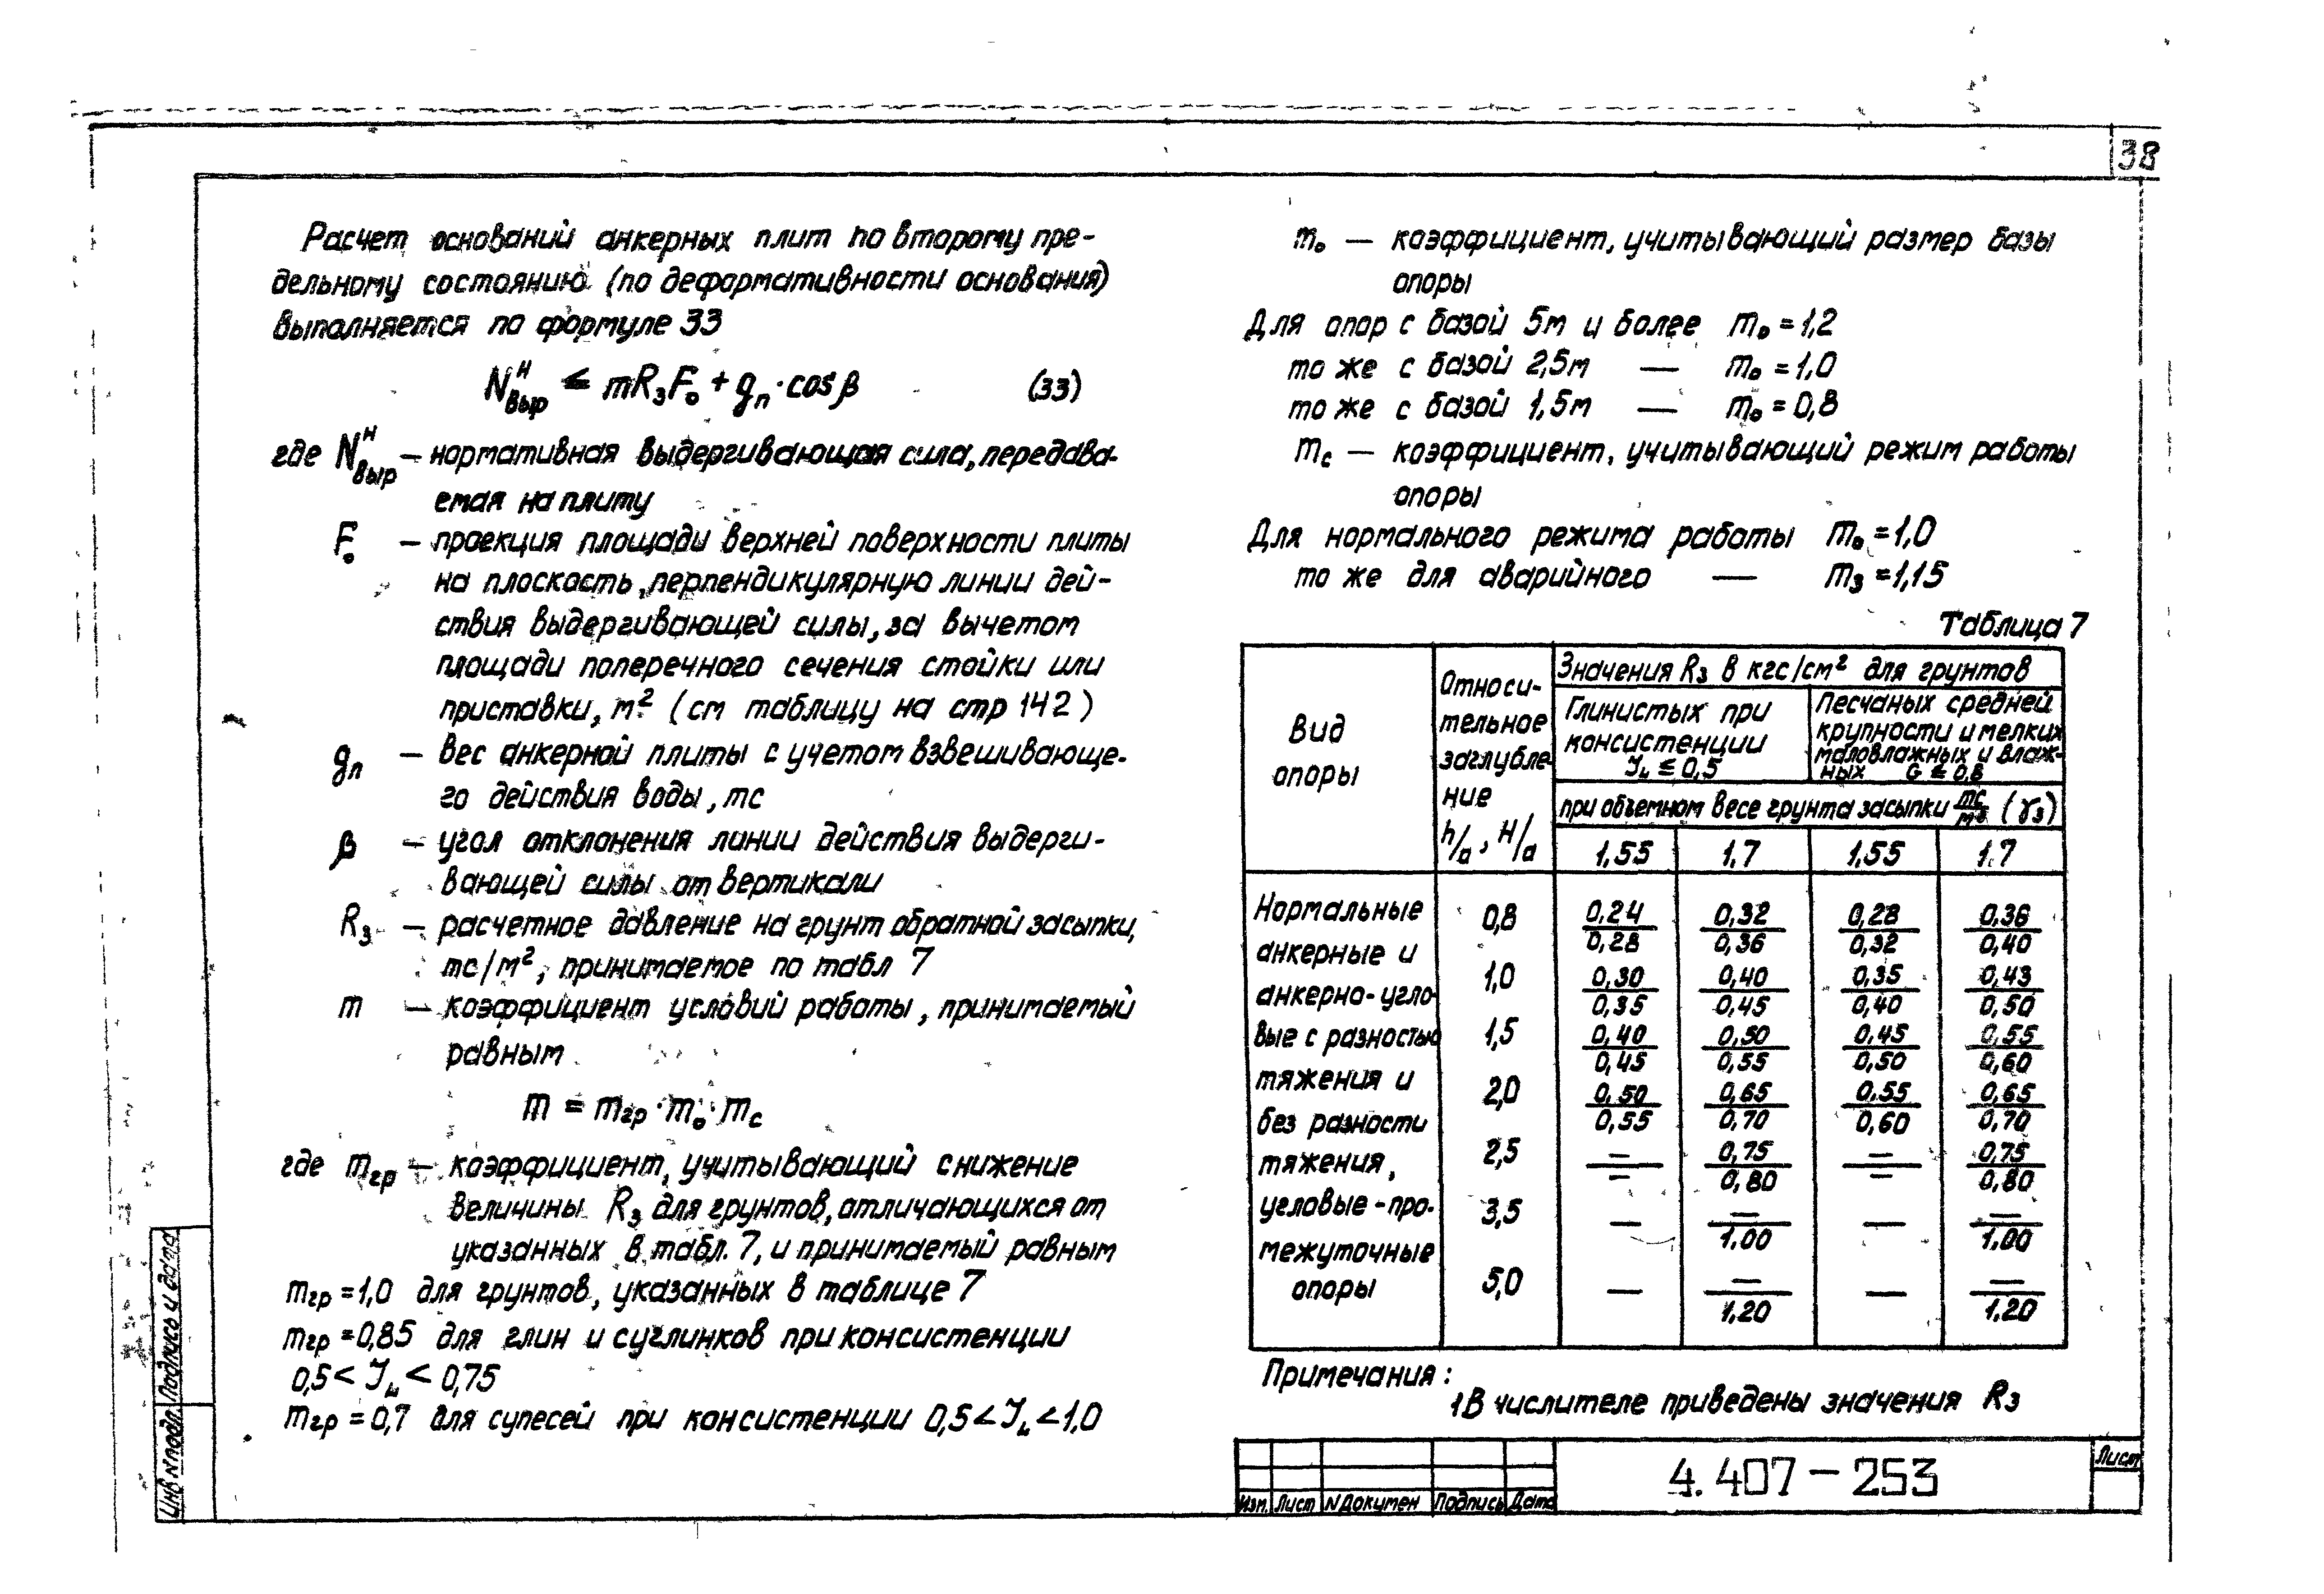 38
Расчет оснований анкерных плит по второму пре-
дельному состоянию (по деформативности основания)
выполняется по формуле 33
Nᴴвыр ≤ mRзF₀ + gп · cos β (33)
где Nᴴвыр — нормативная выдергивающая сила, передава-
емая на плиту
F₀ — проекция площади верхней поверхности плиты
на плоскость, перпендикулярную линии дей-
ствия выдергивающей силы, за вычетом
площади поперечного сечения стойки или
приставки, м² (см таблицу на стр 142)
gп — вес анкерной плиты с учетом взвешивающе-
го действия воды, тс
β — угол отклонения линии действия выдерги-
вающей силы от вертикали
Rз — расчетное давление на грунт обратной засыпки,
тс/м², принимаемое по табл 7
m — коэффициент условий работы, принимаемый
равным
m = mгр · m₀ · mс
где mгр — коэффициент, учитывающий снижение
величины Rз для грунтов, отличающихся от
указанных в табл. 7, и принимаемый равным
mгр = 1,0 для грунтов, указанных в таблице 7
mгр = 0,85 для глин и суглинков при консистенции
0,5 < JL < 0,75
mгр = 0,7 для супесей при консистенции 0,5 < JL < 1,0
m₀ — коэффициент, учитывающий размер базы
опоры
Для опор с базой 5м и более m₀ = 1,2
то же с базой 2,5м — m₀ = 1,0
то же с базой 1,5м — m₀ = 0,8
mс — коэффициент, учитывающий режим работы
опоры
Для нормального режима работы m₀ = 1,0
то же для аварийного — mз = 1,15
Таблица 7
Вид
опоры
Относи-
тельное
заглубле-
ние
h/a, H/a
Значения Rз в кгс/см² для грунтов
Глинистых при
консистенции
JL ≤ 0,5
Песчаных средней
крупности и мелких
маловлажных и влаж-
ных G ≤ 0,8
при объемном весе грунта засыпки тс/м³ (γз)
1,55 1,7 1,55 1.7
Нормальные
анкерные и
анкерно-угло-
вые с разностью
тяжения и
без разности
тяжения,
угловые-про-
межуточные
опоры
0,8 0,24/0,28 0,32/0,36 0,28/0,32 0,36/0,40
1,0 0,30/0,35 0,40/0,45 0,35/0,40 0,43/0,50
1,5 0,40/0,45 0,50/0,55 0,45/0,50 0,55/0,60
2,0 0,50/0,55 0,65/0,70 0,55/0,60 0,65/0,70
2,5 —/— 0,75/0,80 —/— 0,75/0,80
3,5 — —/1.00 — —/1.00
5,0 — —/1.20 — —/1.20
Примечания:
1 В числителе приведены значения Rз
Изм. Лист N Докумен Подпись Дата
4.407-253
Лист
Инв N подл. Подпись и дата